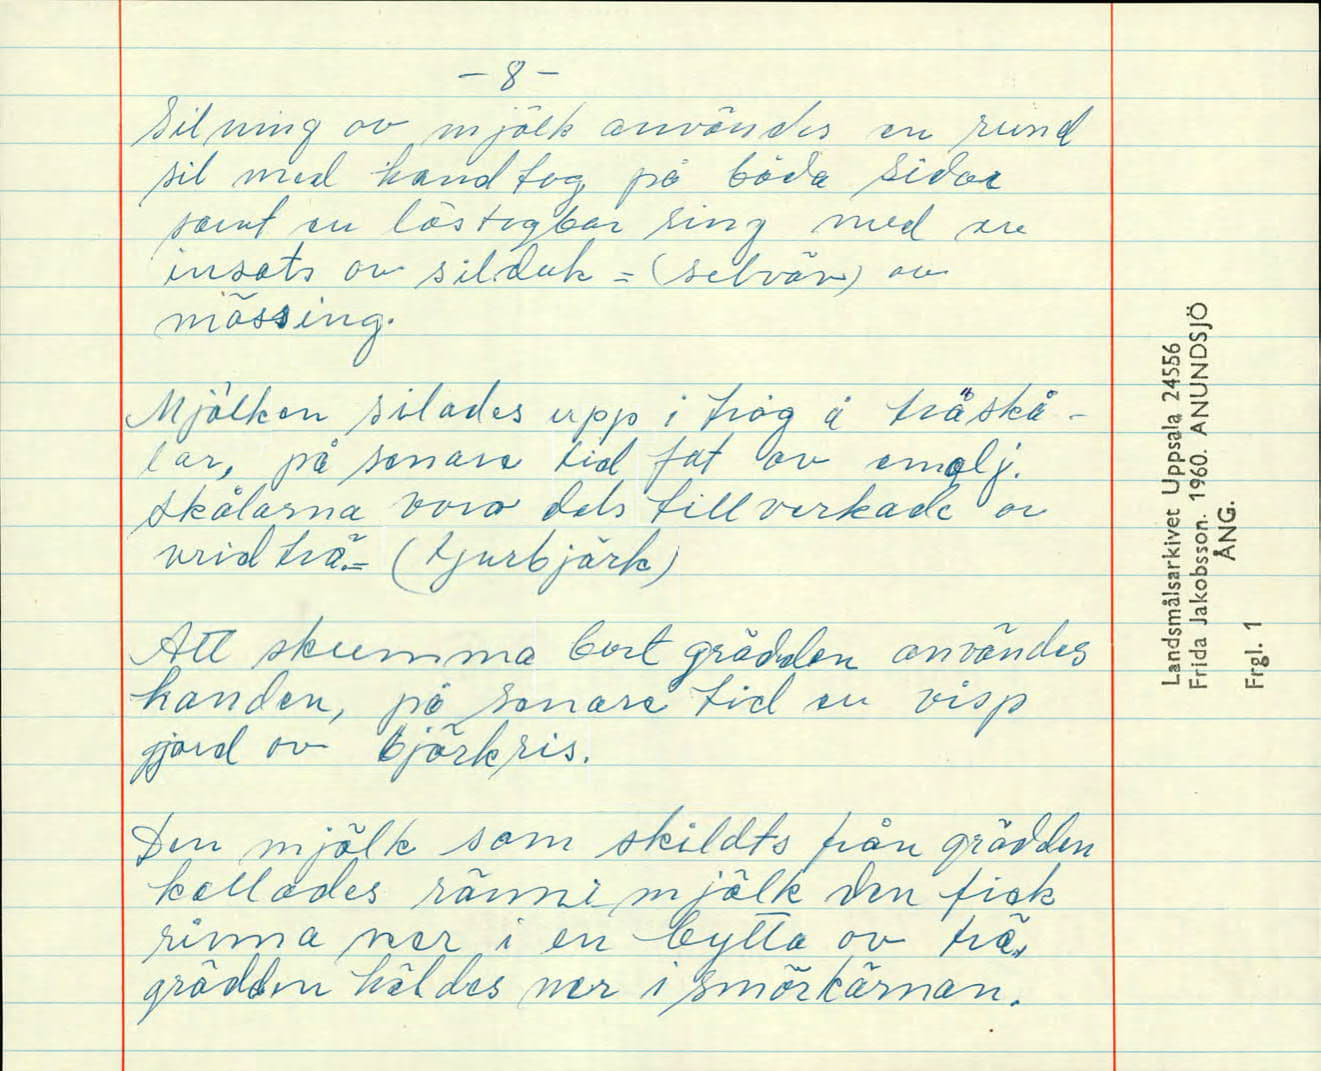 - 8 -
Silning av mjölk användes en rund
sil med handtag på båda sidor
samt en löstagbar ring med en
insats av silduk = (selvän) av
mässing.
Mjölken silades upp i tråg å träskå-
lar, på senare tid fat av emalj.
Skålarna voro dels tillverkade av
vridträ. = (tjurbjörk)
Att skumma bort grädden användes
handen, på senare tid en visp
gjord av björkris.
Den mjölk som skildts från grädden
kallades rännimjölk den fick
rinna ner i en bytta av trä,
grädden häldes ner i smörkärnan.
Landsmålsarkivet Uppsala 24556
Frida Jakobsson. 1960. ANUNDSJÖ
ÅNG.
Frgl. 1